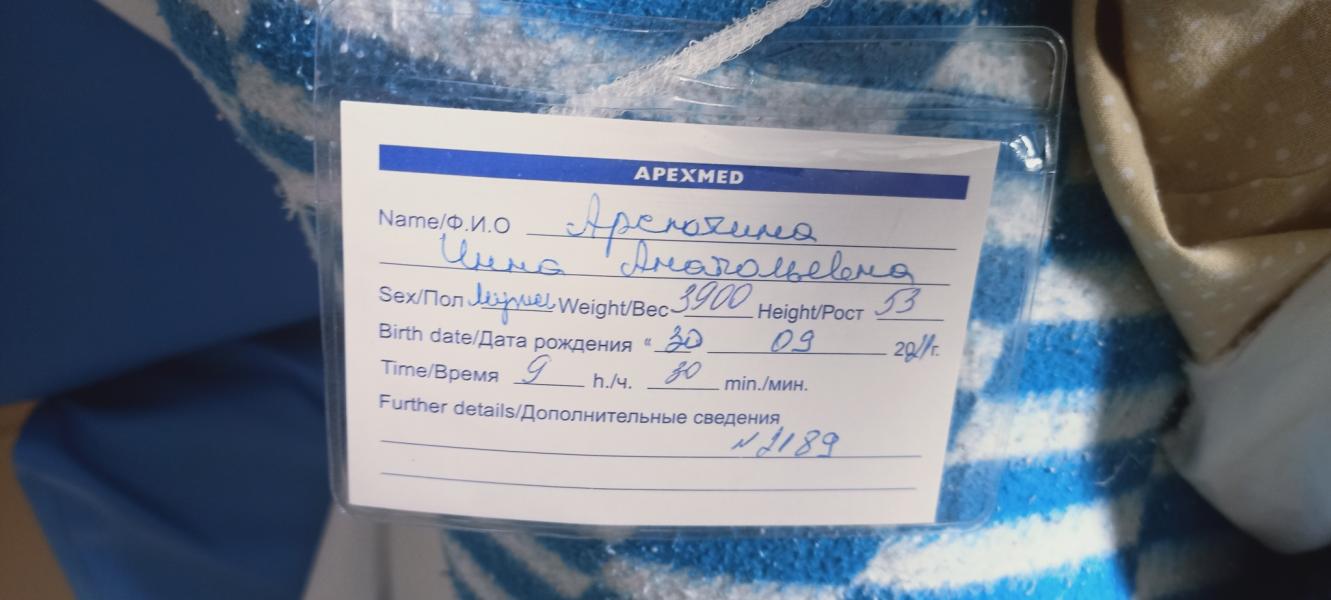 APEXMED
Name/Ф.И.О
Инна Анатольевна
Sex/Пол Weight/Вес 3900 Height/Рост 53
Birth date/Дата рождения « 30 09 20 г.
Time/Время 9 h./ч. 30 min./мин.
Further details/Дополнительные сведения
№ 1189